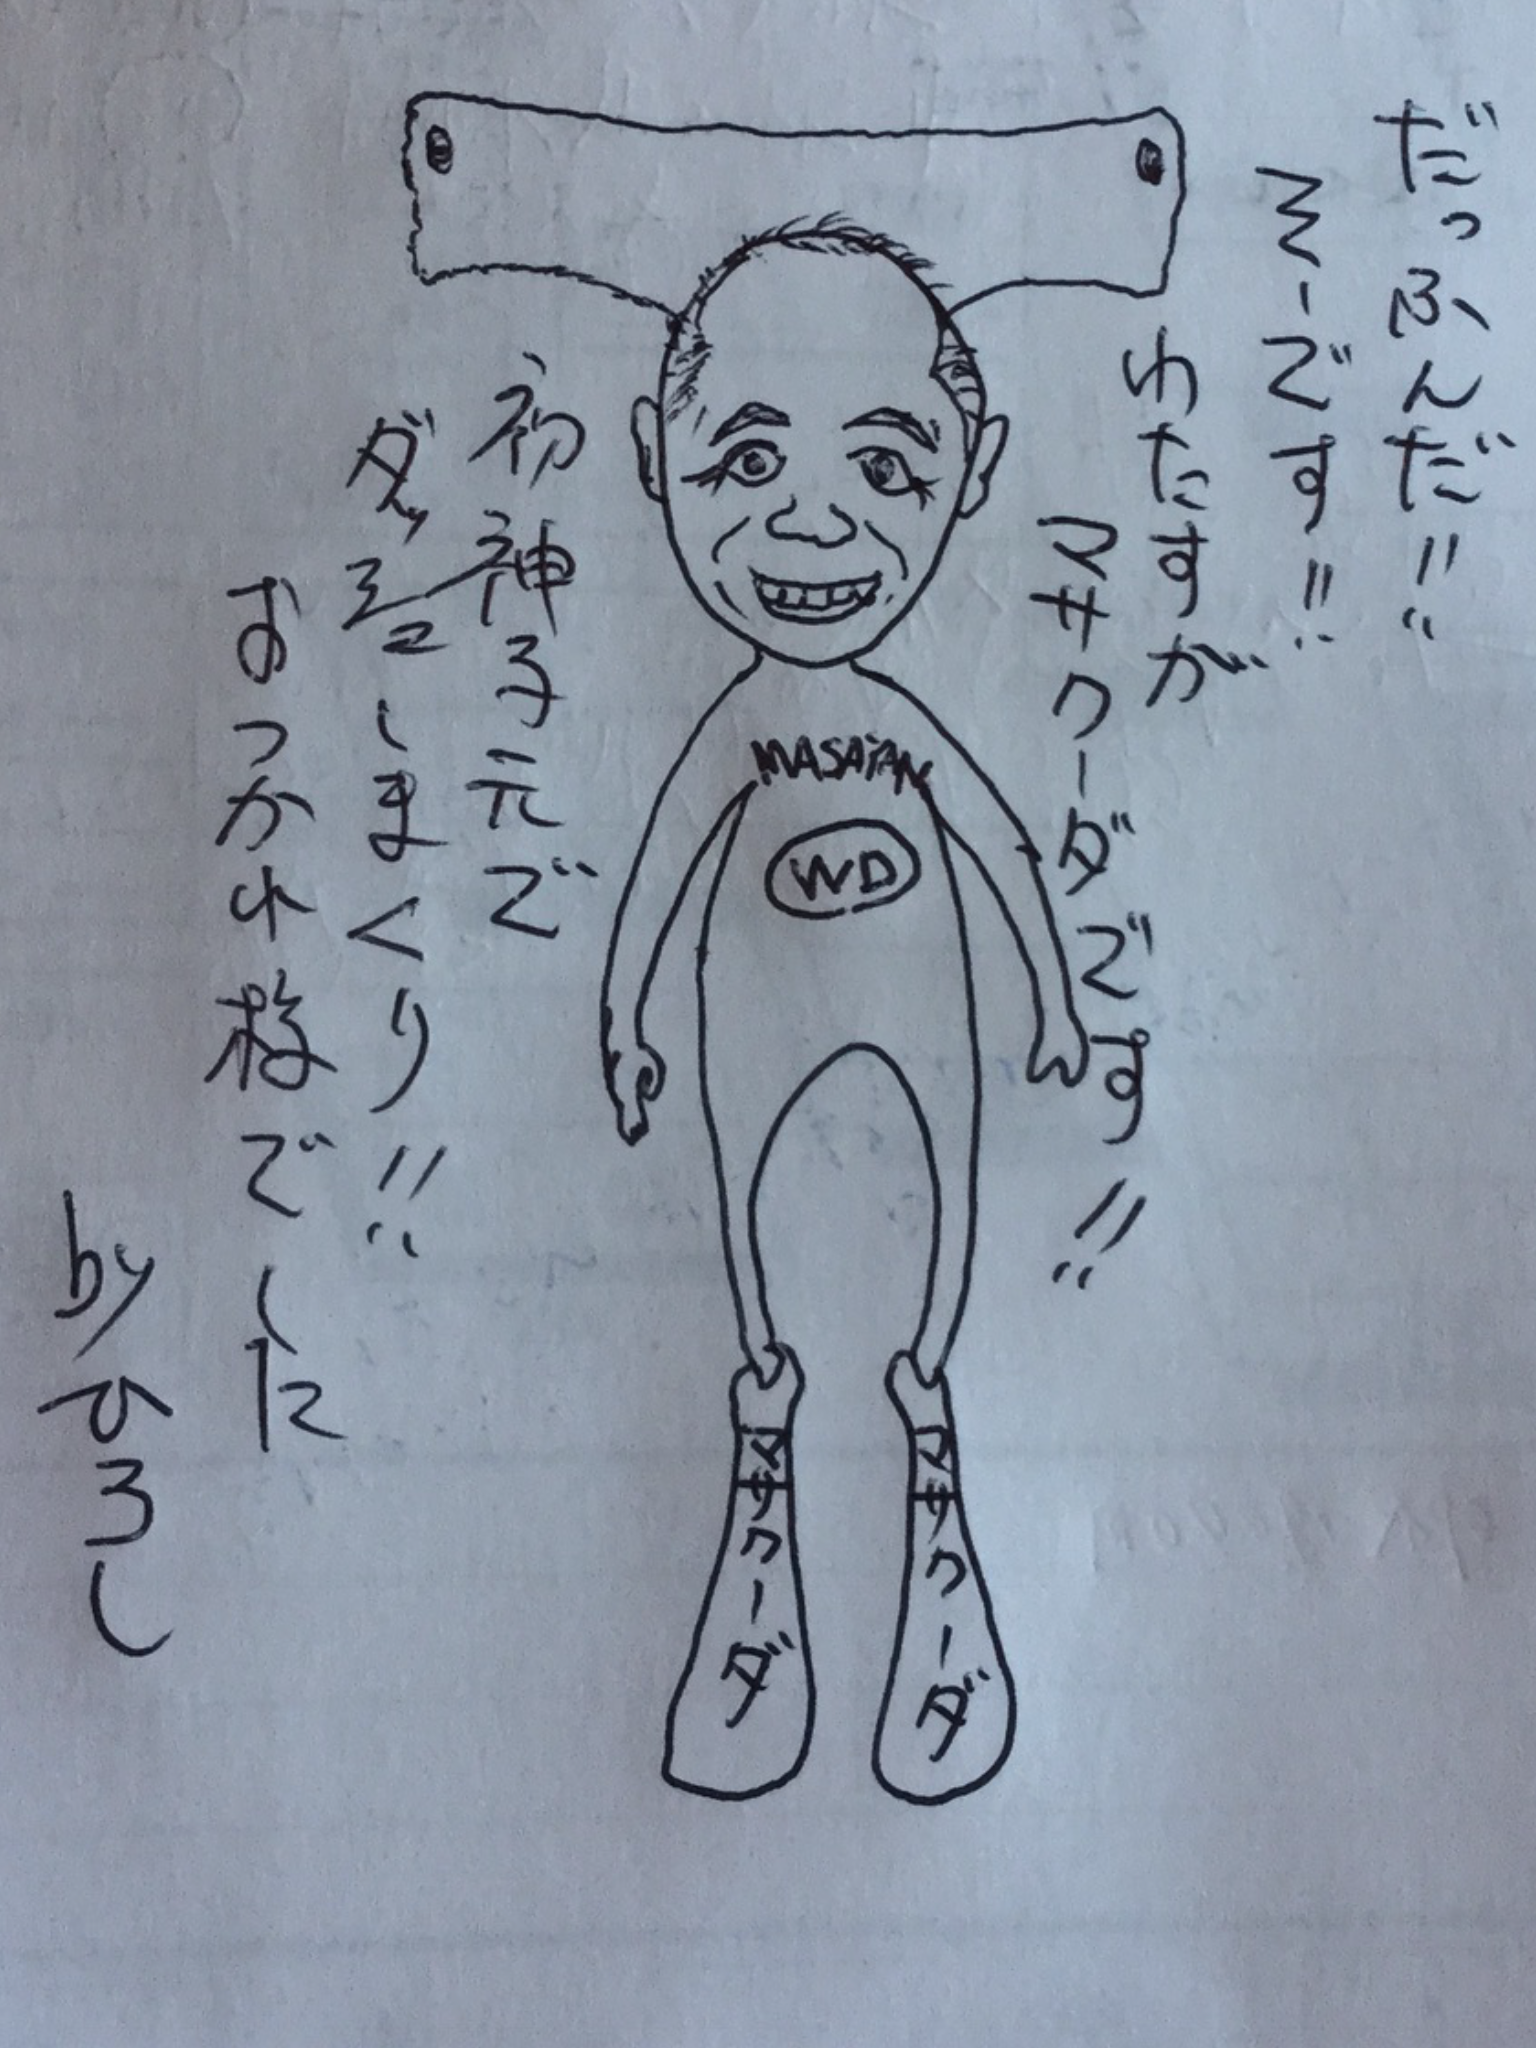 だっふんだ!!
そーです!!
わたすが
マサクーダです!!
初神子元で
ダッシューしまくり!!
おつかれ様でした
byひろし
MASAYAN
WD
マサクーダ
マサクーダ